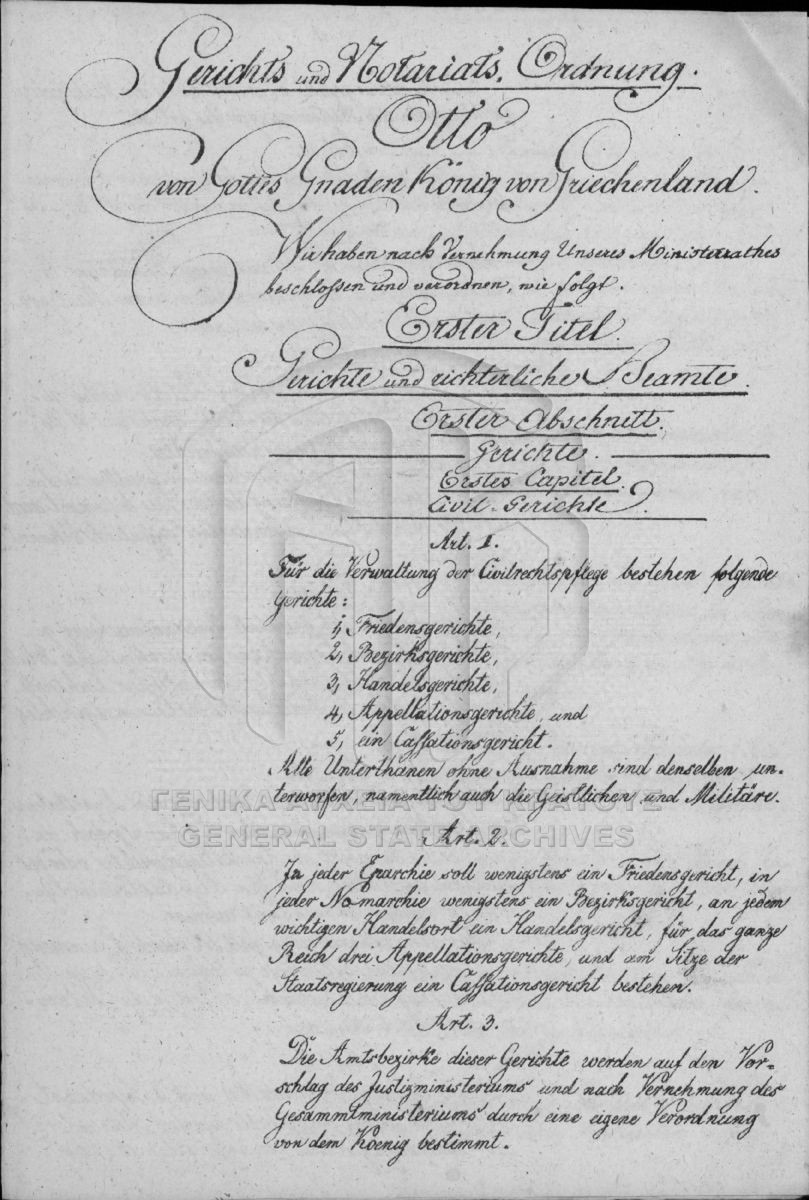 Gerichts und Notariats-Ordnung.
Otto
von Gottes Gnaden König von Griechenland.
Wir haben nach Vernehmung Unseres Ministerrathes
beschlossen und verordnen, wie folgt.
Erster Titel.
Gerichte und richterliche Beamte.
Erster Abschnitt.
Gerichte.
Erstes Capitel.
Civil-Gerichte.
Art. 1.
Für die Verwaltung der Civilrechtspflege bestehen folgende
Gerichte:
1, Friedensgerichte,
2, Bezirksgerichte,
3, Handelsgerichte,
4, Appellationsgerichte, und
5, ein Cassationsgericht.
Alle Unterthanen ohne Ausnahme sind denselben un-
terworfen, namentlich auch die Geistlichen und Militäre.
ΓΕΝΙΚΑ ΑΡΧΕΙΑ ΤΟΥ ΚΡΑΤΟΥΣ
GENERAL STATE ARCHIVES
Art. 2.
In jeder Eparchie soll wenigstens ein Friedensgericht, in
jeder Nomarchie wenigstens ein Bezirksgericht, an jedem
wichtigen Handelsort ein Handelsgericht, für das ganze
Reich drei Appellationsgerichte, und am Sitze der
Staatsregierung ein Cassationsgericht bestehen.
Art. 3.
Die Amtsbezirke dieser Gerichte werden auf den Vor-
schlag des Justizministeriums und nach Vernehmung des
Gesammtministeriums durch eine eigene Verordnung
von dem Koenig bestimmt.